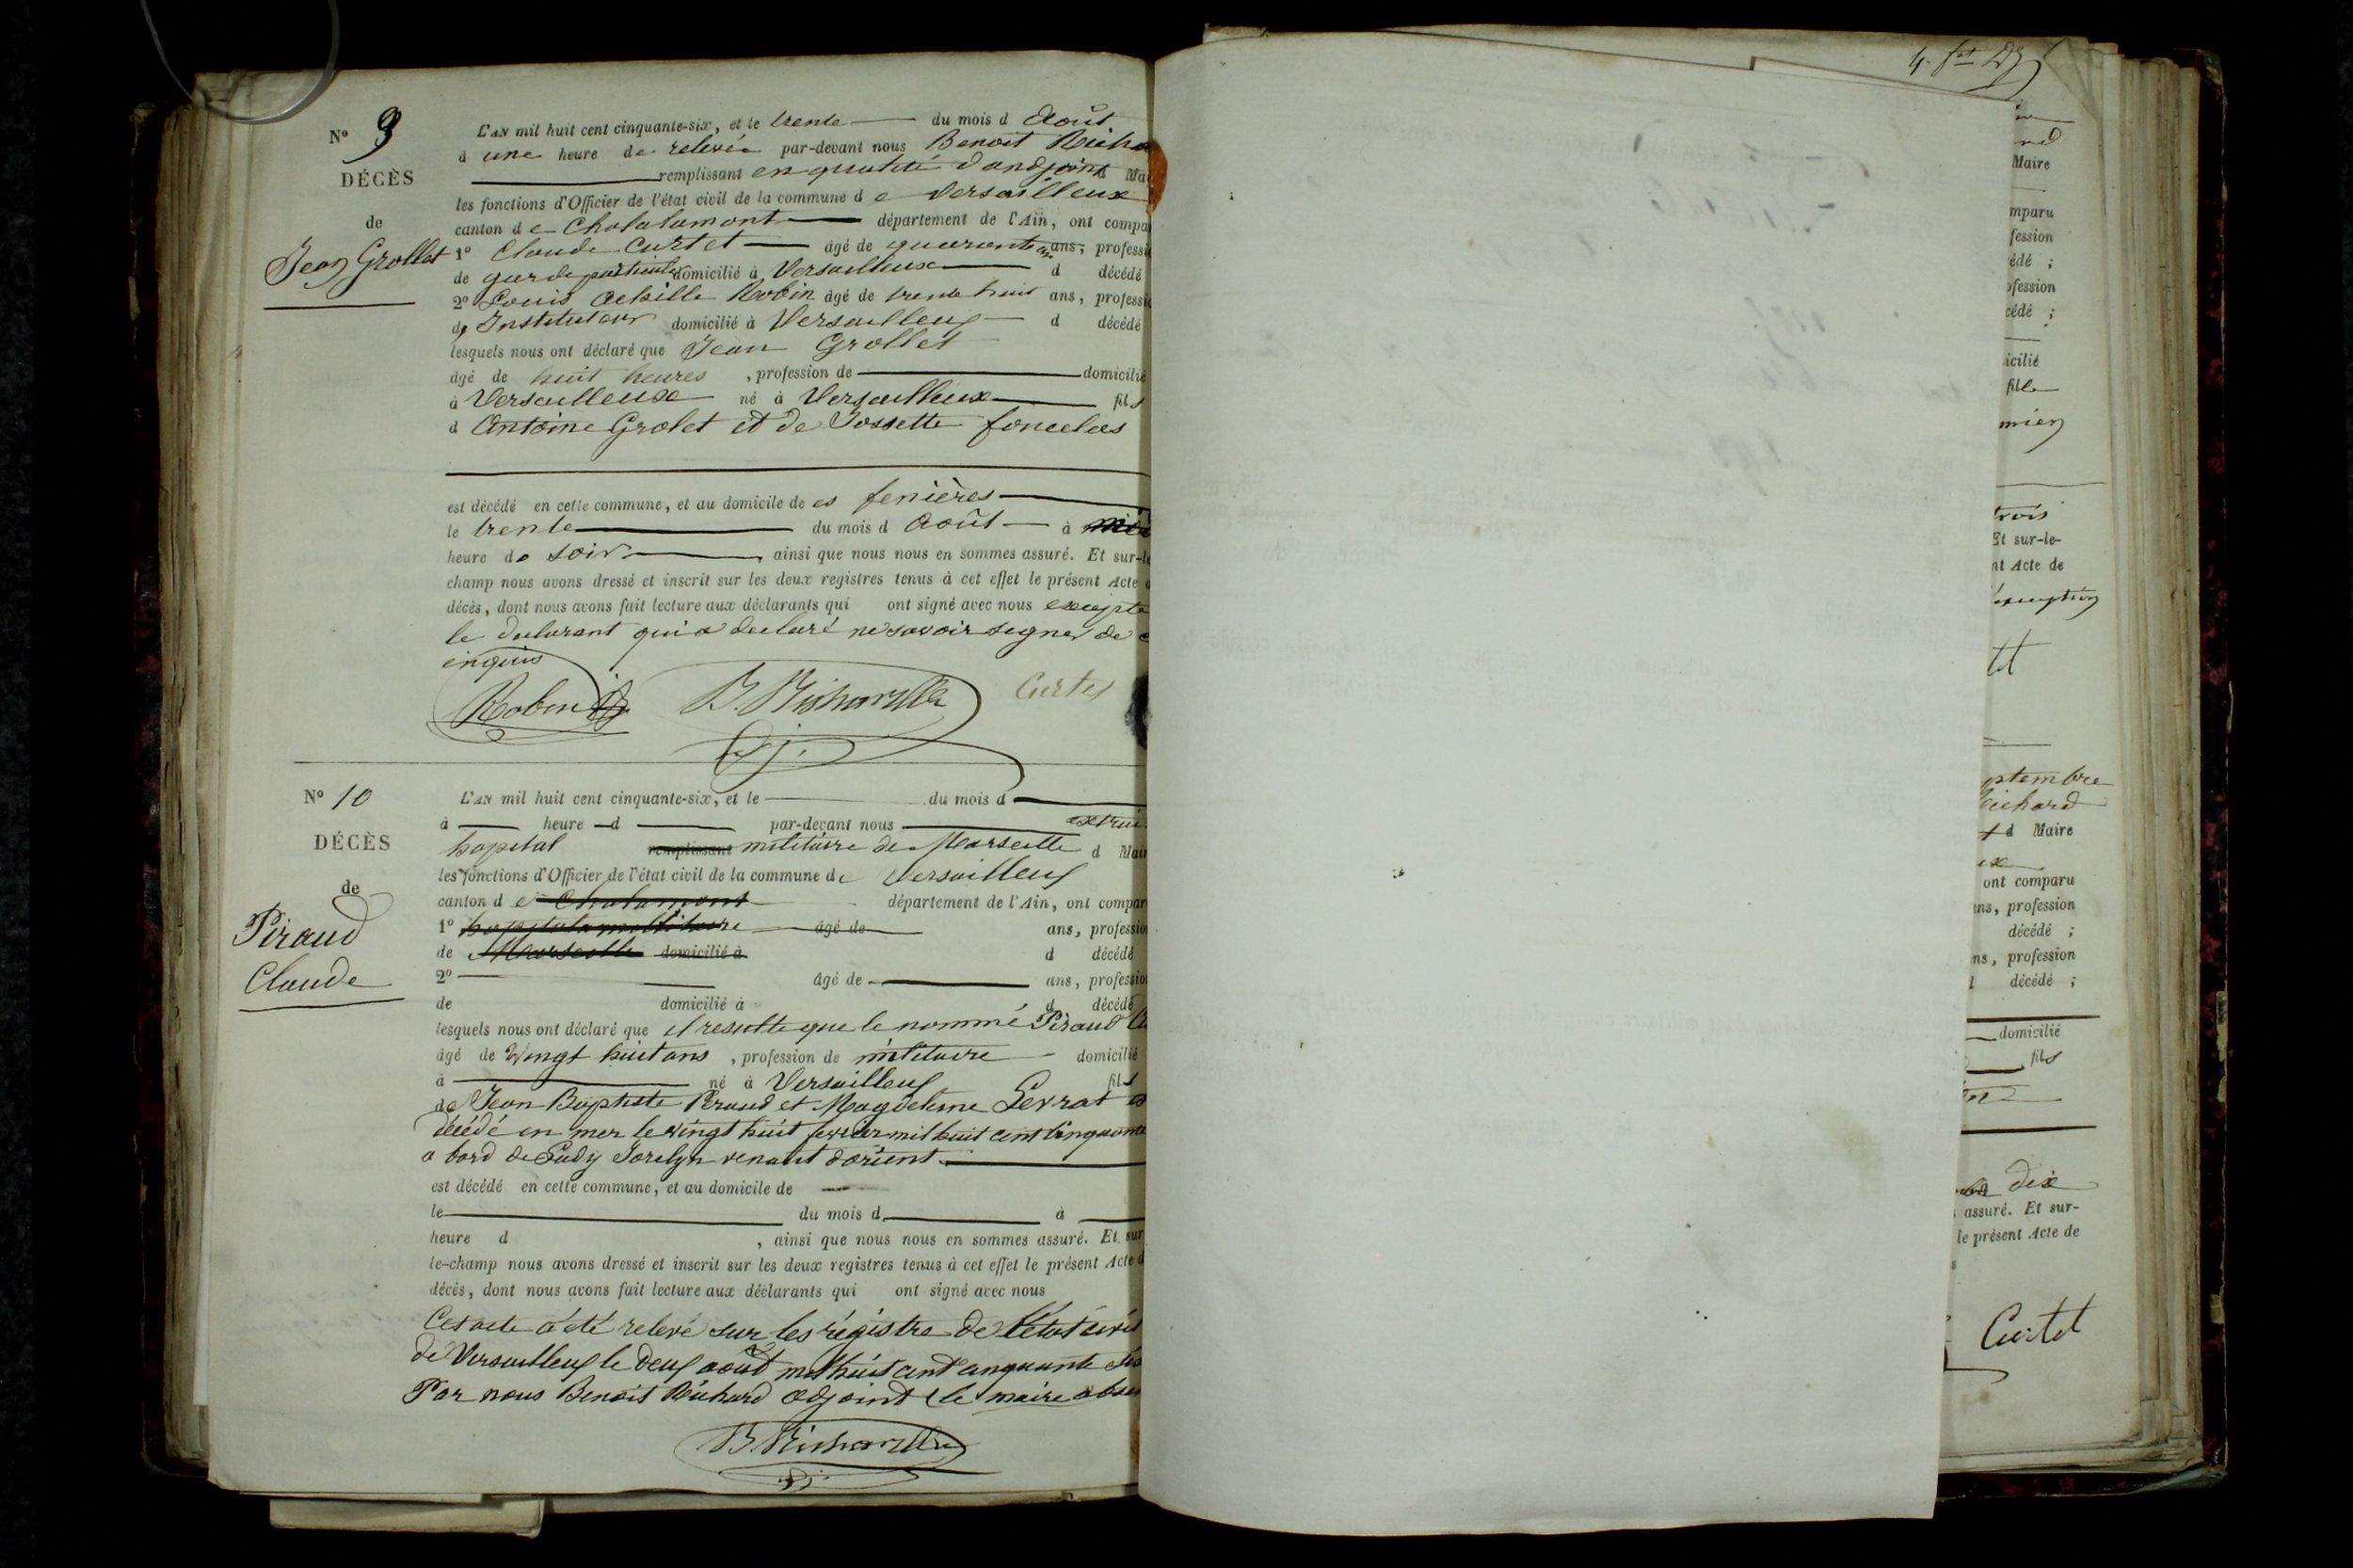 4. fet
N° 9
DÉCÈS
de
Jean Grollet
L'AN mil huit cent cinquante-six, et le trente du mois d Août
à une heure de relevée par-devant nous Benoit Richa
remplissant en qualité d'andjoint d Ma
les fonctions d'Officier de l'état civil de la commune d e Versailleux
canton d e Chalalamont département de l'Ain, ont compa
1° Claude Curtet âgé de quarante ans, professi
de garde particulier domicilié à Versailleux d décédé
2° Louis Achille Robin âgé de trente huit ans, professi
de Instituteur domicilié à Versailleux d décédé
lesquels nous ont déclaré que Jean Grollet
âgé de huit heures, profession de domicilié
à Versailleux né à Versailleux fils
d Antoine Grolet et de Jossette
est décédé en cette commune, et au domicile de es fenières
le trente du mois d Août à
heure de soir, ainsi que nous nous en sommes assuré. Et sur-le
champ nous avons dressé et inscrit sur les deux registres tenus à cet effet le présent Acte d
décès, dont nous avons fait lecture aux déclarants qui ont signé avec nous excepté
le declarant qui a declaré ne savoir signer de c
enquis
Robin B. Richard Curtet
adj.
N° 10
DÉCÈS
de
Piraud
Claude
L'AN mil huit cent cinquante-six, et le du mois d
à heure d par-devant nous extrai
hopital remplissant militaire de Marseille d Mair
les fonctions d'Officier de l'état civil de la commune de Versailleux
canton d e Chalamont département de l'Ain, ont compar
1° hopitala militaire âgé de ans, professio
de Marseille domicilié à d décédé
2° âgé de ans, profession
de domicilié à d décédé
lesquels nous ont déclaré que il resulte que le nommé Piraud Cl
âgé de Vingt huit ans, profession de militaire domicilié
à né à Versailleux fils
de Jean Baptiste Piraud et Magdeleine Levrat es
décédé en mer le vingt huit fevrier mil huit cent cinquante
a bord de Lady Jocelyn venant d'orient
est décédé en cette commune, et au domicile de
le du mois d à
heure d, ainsi que nous nous en sommes assuré. Et sur
le-champ nous avons dressé et inscrit sur les deux registres tenus à cet effet le présent Acte d
décès, dont nous avons fait lecture aux déclarants qui ont signé avec nous
Cet acte a été relevé sur les régistre de l'état civil
de Versailleux le deux août mil huit cent cinquante six
Par nous Benoit Richard adjoint le maire absen
B. Richard
adj.
nd
Maire
mparu
fession
édé ;
ofession
cédé ;
icilié
fille
mier
trois
Et sur-le-
nt Acte de
exception
tet
eptembre
Richard
t d Maire
ex
ont comparu
ans, profession
décédé ;
ns, profession
d décédé ;
domicilié
fils
dix
assuré. Et sur-
le présent Acte de
s
Curtet